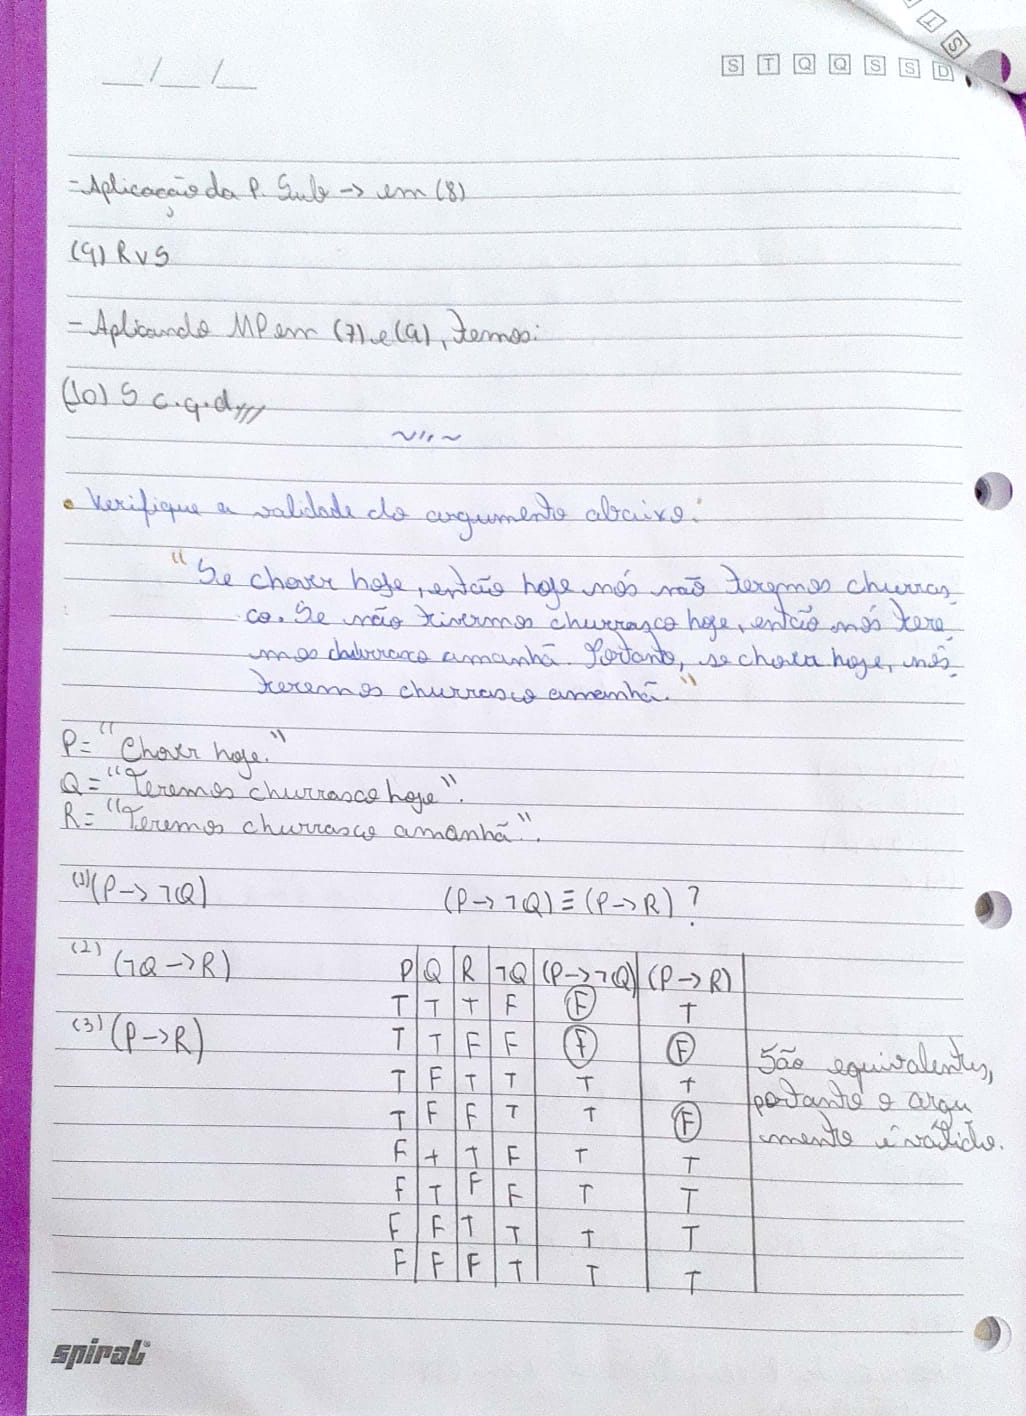 __/__/__
S T Q Q S S D
T S
- Aplicação da P. Sub → em (8)
(9) R v S
- Aplicando MP em (7) e (9), temos:
(10) S c.q.d///
~"~
• Verifique a validade do argumento abaixo:
"Se chover hoje, então hoje nós não teremos churras
co. Se não tivermos churrasco hoje, então nós tere
mos churrasco amanhã. Portanto, se chover hoje, nós
teremos churrasco amanhã."
P= "Chover hoje."
Q= "Teremos churrasco hoje".
R= "Teremos churrasco amanhã".
(1) (P → ¬Q) (P → ¬Q) ≡ (P → R) ?
(2) (¬Q → R)
(3) (P → R)
P Q R ¬Q (P → ¬Q) (P → R)
T T T F F T
T T F F F F
T F T T T T
T F F T T F
F T T F T T
F T F F T T
F F T T T T
F F F T T T
São equivalentes,
portanto o argu
mento é válido.
spiral®